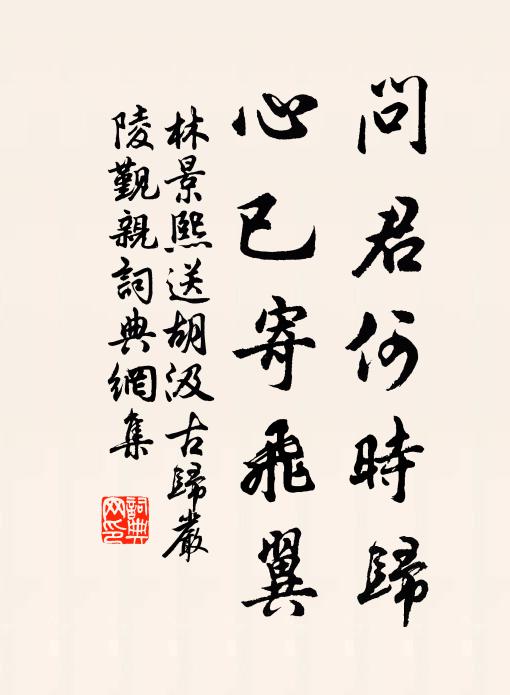 問君何時歸
心已寄飛翼
林景熙送胡汲古歸嚴
陵覲親詞典網集
詞典網印